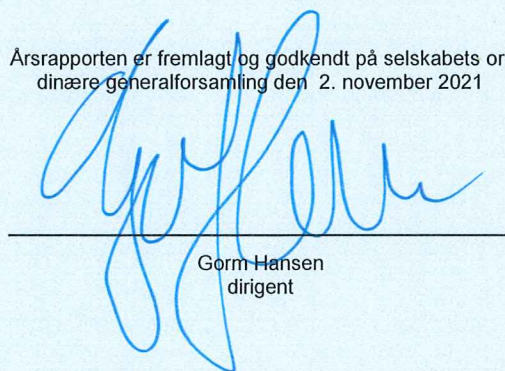 Årsrapporten er fremlagt og godkendt på selskabets or
dinære generalforsamling den 2. november 2021
Gorm Hansen
dirigent